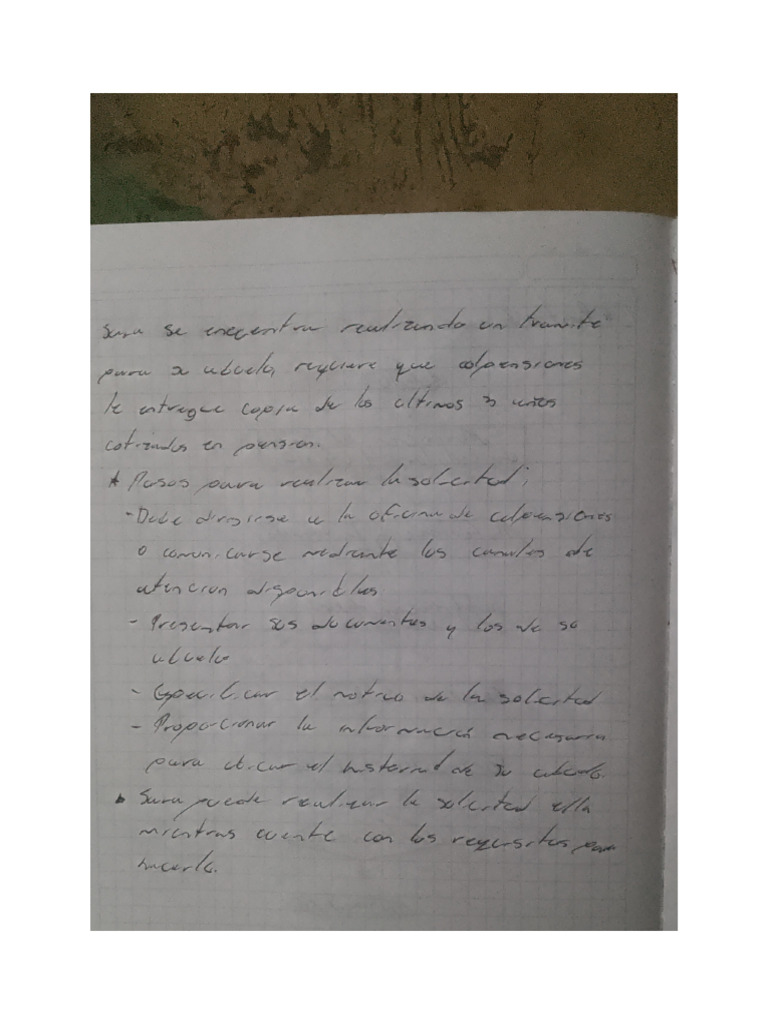 Sara se encuentra realizando un tramite
para su abuela, requiere que colpensiones
le entregue copia de los ultimos 3 meses
cotizados en pension.
* Pasos para realizar la solicitud;
- Debe dirigirse a la oficina de colpensiones
o comunicarse mediante los canales de
atencion disponibles
- Presentar sus documentos y los de su
abuelo
- Especificar el motivo de la solicitud
- Proporcionar la información necesaria
para ubicar el historial de su abuelo.
• Sara puede realizar la solicitud ella
mientras cuente con los requisitos para
hacerlo.